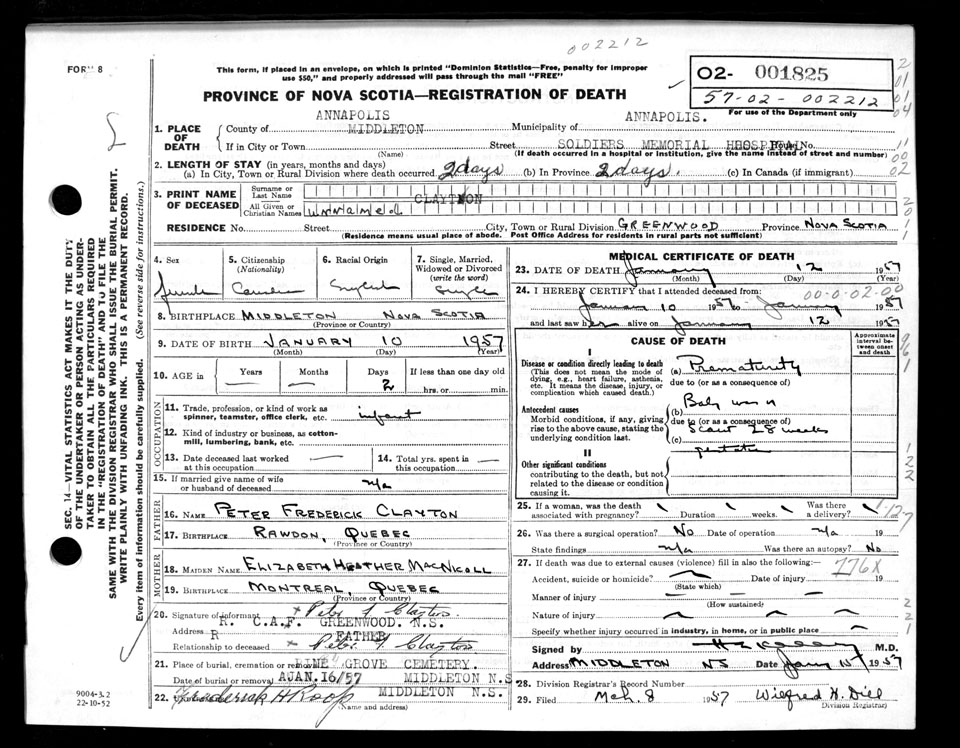 002212
FORM 8
This form, if placed in an envelope, on which is printed "Dominion Statistics—Free, penalty for improper
use $50," and properly addressed will pass through the mail "FREE"
02- 001825
57-02-002212
For use of the Department only
PROVINCE OF NOVA SCOTIA—REGISTRATION OF DEATH
1. PLACE OF DEATH
County of ANNAPOLIS Municipality of ANNAPOLIS.
If in City or Town MIDDLETON Street SOLDIERS MEMORIAL HOSPITAL House No.
(Name) (If death occurred in a hospital or institution, give the name instead of street and number)
2. LENGTH OF STAY (in years, months and days)
(a) In City, Town or Rural Division where death occurred 2 days (b) In Province 2 days. (c) In Canada (if immigrant)
3. PRINT NAME OF DECEASED
Surname or Last Name CLAYTON
All Given or Christian Names unnamed
RESIDENCE No. Street City, Town or Rural Division GREENWOOD Province NOVA SCOTIA
(Residence means usual place of abode. Post Office Address for residents in rural parts not sufficient)
SEC. 14—VITAL STATISTICS ACT MAKES IT THE DUTY
OF THE UNDERTAKER OR PERSON ACTING AS UNDER-
TAKER TO OBTAIN ALL THE PARTICULARS REQUIRED
IN THE "REGISTRATION OF DEATH" AND TO FILE THE
SAME WITH THE DIVISION REGISTRAR WHO SHALL ISSUE THE BURIAL PERMIT.
WRITE PLAINLY WITH UNFADING INK. THIS IS A PERMANENT RECORD.
Every item of information should be carefully supplied. (See reverse side for instructions.)
4. Sex Female
5. Citizenship (Nationality) Canadian
6. Racial Origin English
7. Single, Married, Widowed or Divorced (write the word) Single
8. BIRTHPLACE MIDDLETON NOVA SCOTIA
(Province or Country)
9. DATE OF BIRTH JANUARY 10 1957
(Month) (Day) (Year)
10. AGE in Years — Months — Days 2 If less than one day old hrs. or min.
OCCUPATION
11. Trade, profession, or kind of work as spinner, teamster, office clerk, etc. infant
12. Kind of industry or business, as cotton-mill, lumbering, bank, etc. —
13. Date deceased last worked at this occupation — 14. Total yrs. spent in this occupation —
15. If married give name of wife or husband of deceased n/a
FATHER
16. NAME PETER FREDERICK CLAYTON
17. BIRTHPLACE RAWDON, QUEBEC
(Province or Country)
MOTHER
18. MAIDEN NAME ELIZABETH HEATHER MACNICOLL
19. BIRTHPLACE MONTREAL, QUEBEC
(Province or Country)
20. Signature of informant x Peter F Clayton.
Address R. C.A.F. GREENWOOD. N.S.
Relationship to deceased FATHER x Peter F. Clayton
21. Place of burial, cremation or removal LIME GROVE CEMETERY.
Date of burial or removal JAN.16/57 MIDDLETON N.S.
22. Frederick H Roop MIDDLETON N.S.
(Name and address)
9004-3.2
22-10-52
MEDICAL CERTIFICATE OF DEATH
23. DATE OF DEATH January 12 1957
(Month) (Day)
24. I HEREBY CERTIFY that I attended deceased from: 00-0-02-00
January 10 1957 to January 1957
and last saw her alive on January 12 1957
CAUSE OF DEATH
Approximate interval between onset and death
I
Disease or condition directly leading to death
(This does not mean the mode of dying, e.g., heart failure, asthenia, etc. It means the disease, injury, or complication which caused death.)
(a) Prematurity
due to (or as a consequence of)
Antecedent causes
Morbid conditions, if any, giving rise to the above cause, stating the underlying condition last.
(b) Baby was
due to (or as a consequence of)
scant 28 weeks
(c) gestation
II
Other significant conditions
contributing to the death, but not related to the disease or condition causing it.
25. If a woman, was the death associated with pregnancy? \ Duration \ weeks. \ Was there a delivery? \
26. Was there a surgical operation? No Date of operation n/a 19
State findings n/a Was there an autopsy? No
27. If death was due to external causes (violence) fill in also the following:— 776X
Accident, suicide or homicide? Date of injury 19
(State which)
Manner of injury
(How sustained)
Nature of injury
Specify whether injury occurred in industry, in home, or in public place
Signed by M.D.
Address MIDDLETON NS Date Jany 15 1957
28. Division Registrar's Record Number
29. Filed Mch. 8 1957 Wilfred H. Dill
Division Registrar